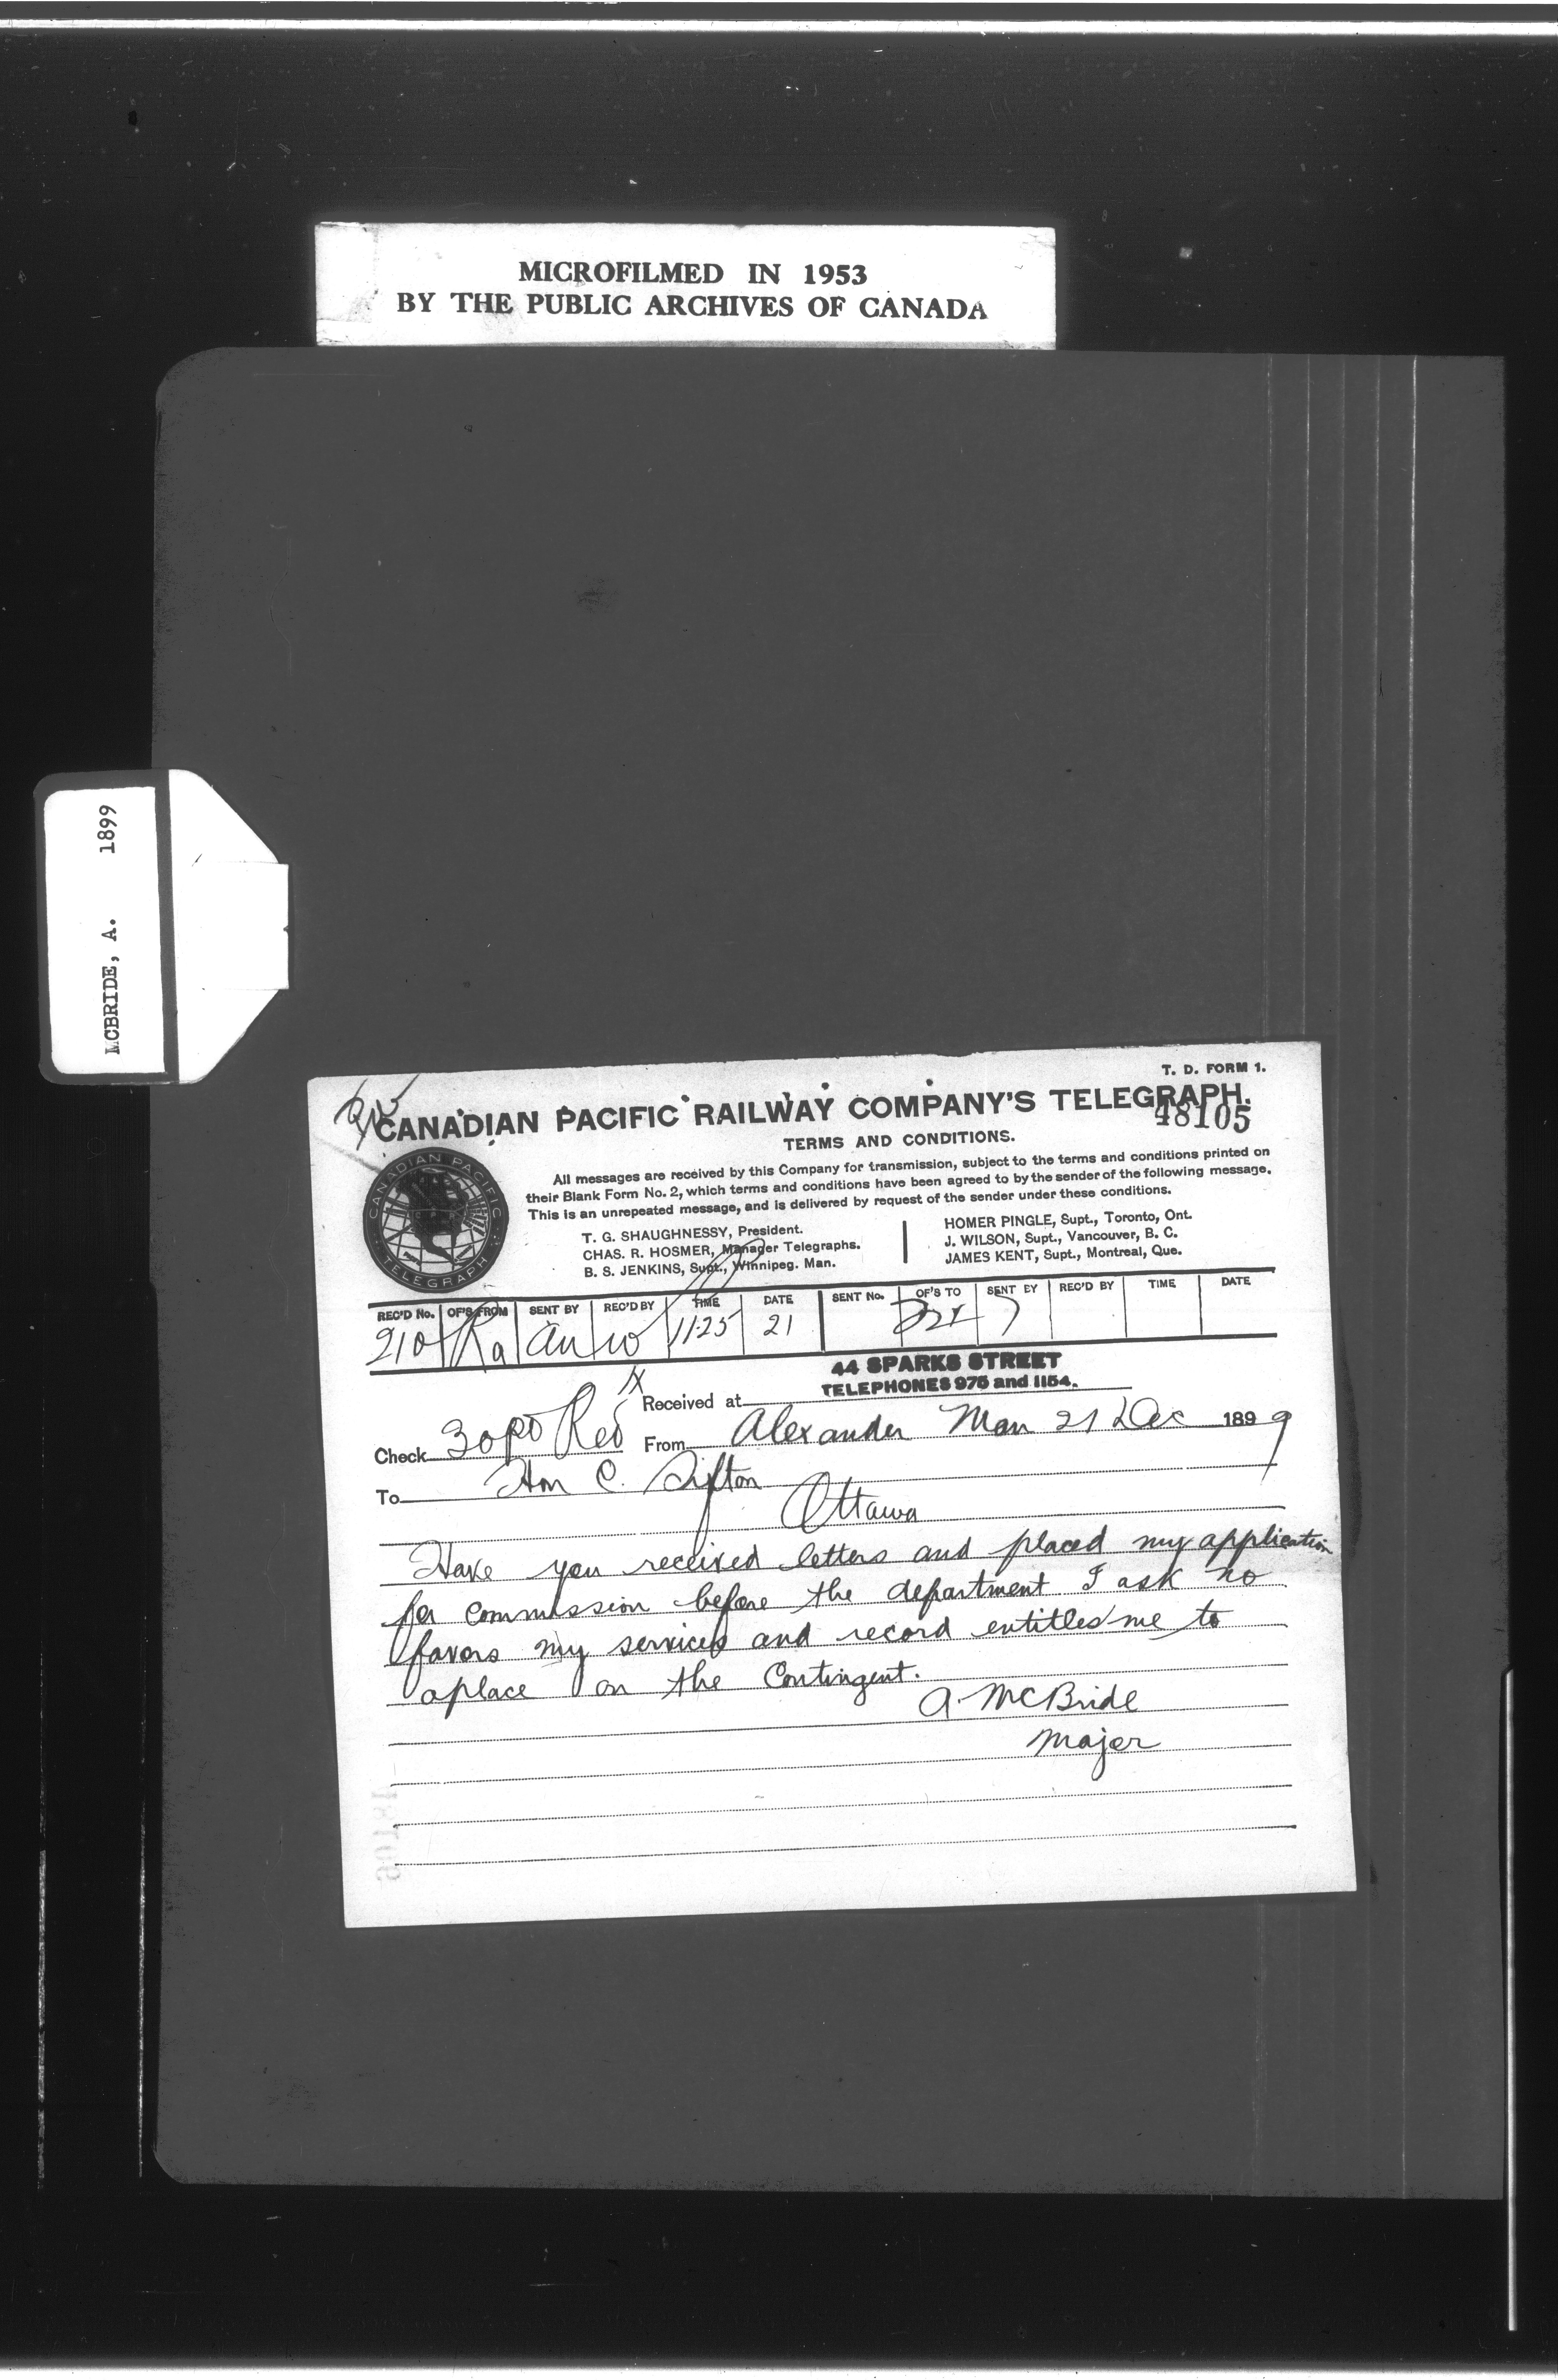 MICROFILMED IN 1953
BY THE PUBLIC ARCHIVES OF CANADA
MCBRIDE, A. 1899
T. D. FORM 1.
CANADIAN PACIFIC RAILWAY COMPANY'S TELEGRAPH.
48105
TERMS AND CONDITIONS.
CANADIAN PACIFIC TELEGRAPH
All messages are received by this Company for transmission, subject to the terms and conditions printed on
their Blank Form No. 2, which terms and conditions have been agreed to by the sender of the following message.
This is an unrepeated message, and is delivered by request of the sender under these conditions.
T. G. SHAUGHNESSY, President.
CHAS. R. HOSMER, Manager Telegraphs.
B. S. JENKINS, Supt., Winnipeg. Man.
HOMER PINGLE, Supt., Toronto, Ont.
J. WILSON, Supt., Vancouver, B. C.
JAMES KENT, Supt., Montreal, Que.
REC'D No. OF'S FROM SENT BY REC'D BY TIME DATE SENT No. OF'S TO SENT BY REC'D BY TIME DATE
210 Ra 1125 21
44 SPARKS STREET
TELEPHONES 975 and 1154.
Received at
Check 30 From Alexander Man 21 Dec 1899
To Hon C. Sifton
Ottawa
Have you received letters and placed my application
for commission before the department I ask no
favors my services and record entitles me to
aplace on the Contingent.
A. McBride
Major